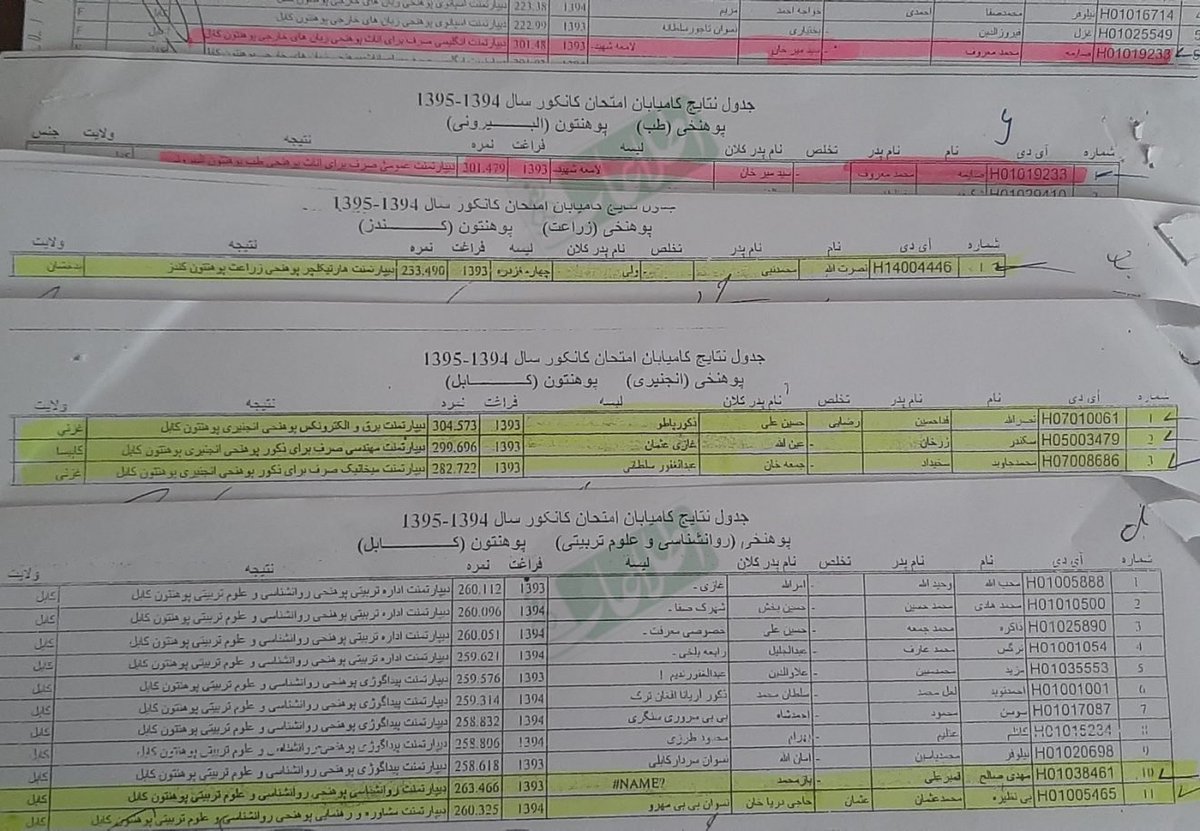 H01016714 نیلوفر محمدصفا احمدی خواجه احمد مریم 1394 223.38
H01025549 غزل فیروزالدین - بختیاری نسوان تاجور سلطانه 1394 222.99
H01019233 صایمه محمد معروف - سید میر خان لامعه شهید- 1393 301.48 دیپارتمنت انگلیسی صرف برای اناث پوهنحی زبان های خارجی پوهنتون کابل
جدول نتایج کامیابان امتحان کانکور سال 1394-1395
پوهنخی (طب) پوهنتون (البــــیرونی)
شماره آی دی نام نام پدر تخلص نام پدر کلان لیسه فراغت نمره نتیجه ولایت جنس
H01019233 صایمه محمد معروف - سید میر خان لامعه شهید- 1393 301.479 دیپارتمنت عمومی صرف برای اناث پوهنحی طب پوهنتون البیرونی
H01029410
پوهنخی (زراعت) پوهنتون (کـــــندز)
شماره آی دی نام نام پدر تخلص نام پدر کلان لیسه فراغت نمره نتیجه ولایت
1 H14004446 نصرت الله محمدنبی - ولی چهارمغزدره 1393 233.490 دیپارتمنت هارتیکلچر پوهنحی زراعت پوهنتون کندز بدخشان
جدول نتایج کامیابان امتحان کانکور سال 1394-1395
پوهنخی (انجنیری) پوهنتون (کـــــــابل)
شماره آی دی نام نام پدر تخلص نام پدر کلان لیسه فراغت نمره نتیجه ولایت
1 H07010061 نصرالله فداحسین رضایی حسین علی ذکور پاطو 1393 304.573 دیپارتمنت برق و الکترونکس پوهنحی انجنیری پوهنتون کابل غزنی
2 H05003479 سکندر زرخان - عین الله غازی عثمان 1393 299.696 دیپارتمنت مهندسی صرف برای ذکور پوهنحی انجنیری پوهنتون کابل کاپیسا
3 H07008686 محمدجاوید سخیداد - جمعه خان عبدالغفور سلطانی 1393 282.722 دیپارتمنت میخانیک صرف برای ذکور پوهنحی انجنیری پوهنتون کابل غزنی
جدول نتایج کامیابان امتحان کانکور سال 1394-1395
پوهنخی (روانشناسی و علوم تربیتی) پوهنتون (کـــــــابل)
شماره آی دی نام نام پدر تخلص نام پدر کلان لیسه فراغت نمره نتیجه ولایت
1 H01005888 محب الله وحید الله - امرالله غازی - 1393 260.112 دیپارتمنت اداره تربیتی پوهنحی روانشناسی و علوم تربیتی پوهنتون کابل کابل
2 H01010500 محمد هادی محمد حسین - حسین بخش شهرک صفا - 1394 260.096 دیپارتمنت اداره تربیتی پوهنحی روانشناسی و علوم تربیتی پوهنتون کابل کابل
3 H01025890 ذاکره محمد جمعه - حسین علی خصوصی معرفت - 1394 260.051 دیپارتمنت اداره تربیتی پوهنحی روانشناسی و علوم تربیتی پوهنتون کابل کابل
4 H01001054 نرگس محمد عارف - عبدالجلیل رابعه بلخی - 1394 259.621 دیپارتمنت اداره تربیتی پوهنحی روانشناسی و علوم تربیتی پوهنتون کابل کابل
5 H01035553 مزید - علاوالدین عبدالغفور ندیم ! 1393 259.576 دیپارتمنت پیداگوژی پوهنحی روانشناسی و علوم تربیتی پوهنتون کابل کابل
6 H01001001 احمدنوید لعل محمد - سلطان محمد ذکور آریانا افغان ترک 1394 259.314 دیپارتمنت پیداگوژی پوهنحی روانشناسی و علوم تربیتی پوهنتون کابل کابل
7 H01017087 سوسن محمود - احمدشاه بی بی سروری سنگری 1394 258.832 دیپارتمنت پیداگوژی پوهنحی روانشناسی و علوم تربیتی پوهنتون کابل کابل
8 H01015234 عظیم - بهرام محمود طرزی 1394 258.806 دیپارتمنت پیداگوژی پوهنحی روانشناسی و علوم تربیتی پوهنتون کابل کابل
9 H01020698 نیلوفر محمدیاسین - امان الله نسوان سردار کابلی 1394 258.618 دیپارتمنت پیداگوژی پوهنحی روانشناسی و علوم تربیتی پوهنتون کابل کابل
10 H01038461 مهدی صالح قمبرعلی - بازمحمد #NAME? 1393 263.466 دیپارتمنت روانشناسی پوهنحی روانشناسی و علوم تربیتی پوهنتون کابل کابل
11 H01005465 بی نظیره محمدعثمان عثمان حاجی دریا خان نسوان بی بی مهرو 1394 260.325 دیپارتمنت مشاوره و رهنمایی پوهنحی روانشناسی و علوم تربیتی پوهنتون کابل کابل